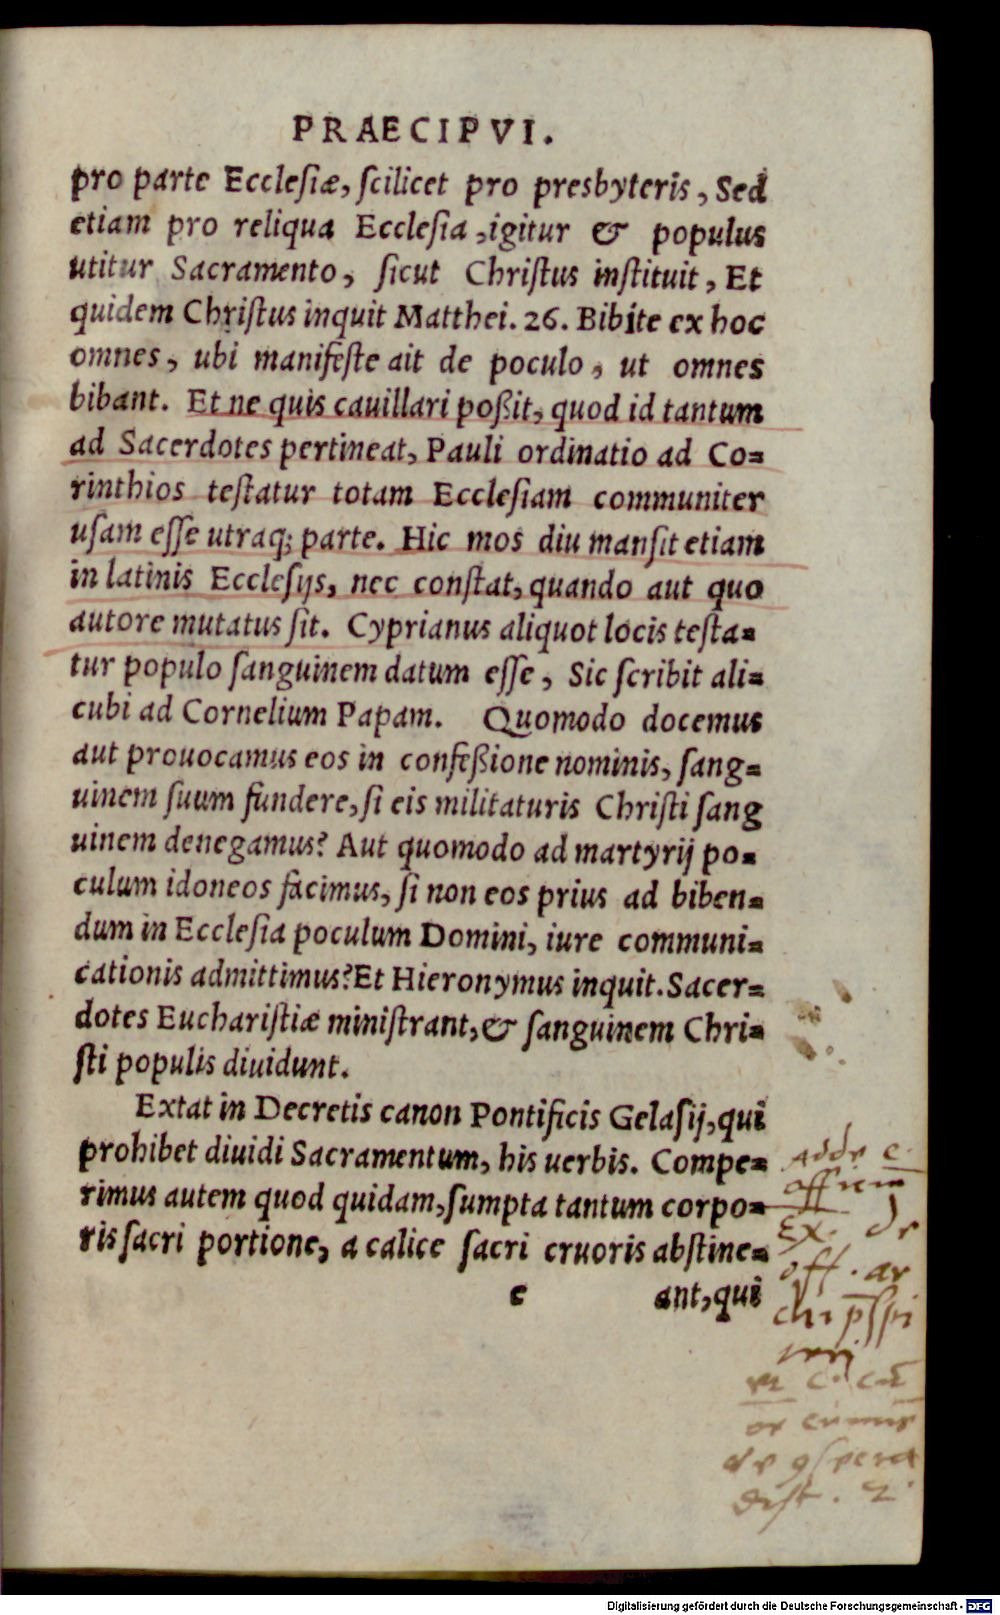 PRAECIPVI.
pro parte Ecclesiæ, scilicet pro presbyteris, Sed
etiam pro reliqua Ecclesia, igitur & populus
utitur Sacramento, sicut Christus instituit, Et
quidem Christus inquit Matthei. 26. Bibite ex hoc
omnes, ubi manifeste ait de poculo, ut omnes
bibant. Et ne quis cauillari poßit, quod id tantum
ad Sacerdotes pertineat, Pauli ordinatio ad Co=
rinthios testatur totam Ecclesiam communiter
usam esse utraq; parte. Hic mos diu mansit etiam
in latinis Ecclesijs, nec constat, quando aut quo
autore mutatus sit. Cyprianus aliquot locis testa=
tur populo sanguinem datum esse, Sic scribit ali=
cubi ad Cornelium Papam. Quomodo docemus
aut prouocamus eos in confeßione nominis, sang=
uinem suum fundere, si eis militaturis Christi sang
uinem denegamus? Aut quomodo ad martyrij po=
culum idoneos facimus, si non eos prius ad biben=
dum in Ecclesia poculum Domini, iure communi=
cationis admittimus? Et Hieronymus inquit. Sacer=
dotes Eucharistiæ ministrant, & sanguinem Chri=
sti populis diuidunt.
Extat in Decretis canon Pontificis Gelasij, qui
prohibet diuidi Sacramentum, his uerbis. Compe=
rimus autem quod quidam, sumpta tantum corpo=
ris sacri portione, a calice sacri cruoris abstine=
c ant, qui
Adde c.
officium
Ex. de
off. ar
dist. 2.
Digitalisierung gefördert durch die Deutsche Forschungsgemeinschaft - DFG